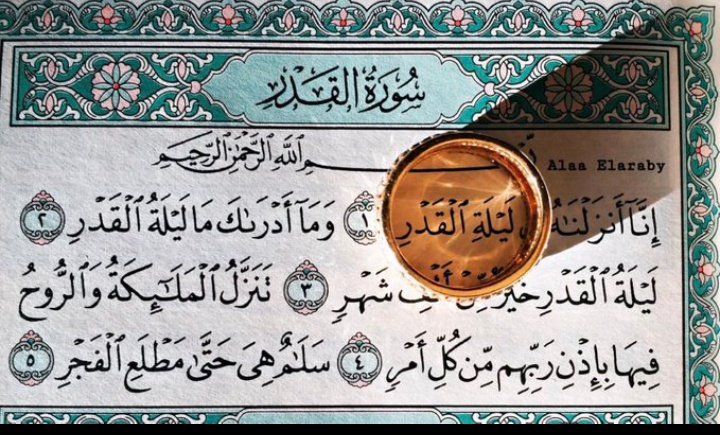 سُورَةُ القَدْرِ
ـمِ ٱللَّهِ ٱلرَّحْمَٰنِ ٱلرَّحِيمِ
Alaa Elaraby
إِنَّآ أَنزَلْنَـٰهُ لَيْلَةِ ٱلْقَدْرِ ١ وَمَآ أَدْرَىٰكَ مَا لَيْلَةُ ٱلْقَدْرِ ٢
لَيْلَةُ ٱلْقَدْرِ خَيْرٌ شَهْرٍ ٣ تَنَزَّلُ ٱلْمَلَـٰٓئِكَةُ وَٱلرُّوحُ
فِيهَا بِإِذْنِ رَبِّهِم مِّن كُلِّ أَمْرٍ ٤ سَلَـٰمٌ هِىَ حَتَّىٰ مَطْلَعِ ٱلْفَجْرِ ٥